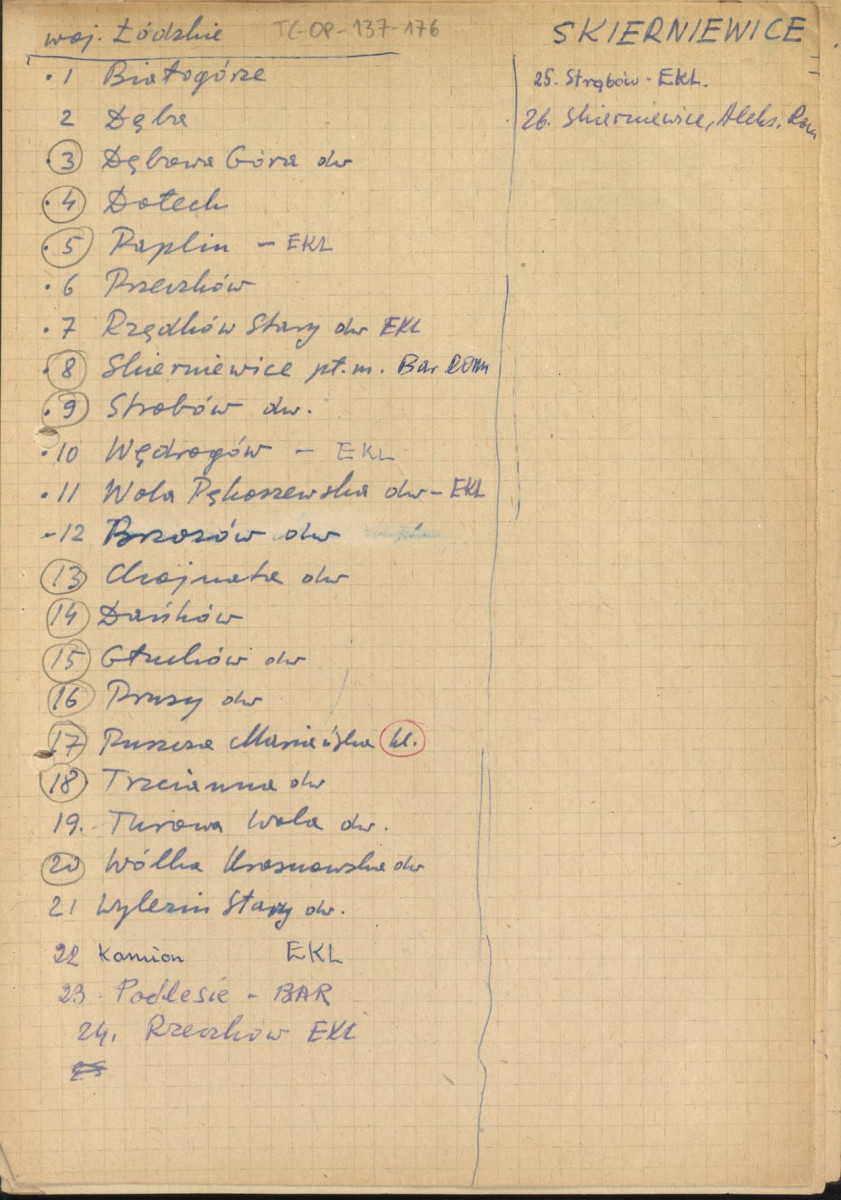 woj. Łódzkie TG-OP-137-176
SKIERNIEWICE
1 Białogórze
2 Dęba
3 Dębowa Góra dw
4 Dołeck
5 Raplin - EKL
6 Rzeczków
7 Rzędków Stary dw EKL
8 Skierniewice pt. m. Bar Rom
9 Strobów dw.
10 Wędrogów - EKL
11 Wola Pękoszewska dw - EKL
12 Brzozów dw
13 Chojnata dw
14 Dańków
15 Głuchów dw
16 Prusy dw
17 Puszcza Mariańska kl.
18 Trzcianna dw
19. Turowa Wola dw.
20 Wólka Krosnowska dw
21 Wylezin Stary dw.
22 Kamion EKL
23 Podlesie - BAR
24. Rzeczków EKL
25. Strobów - EKL.
26. Skierniewice, Aleks. Rom